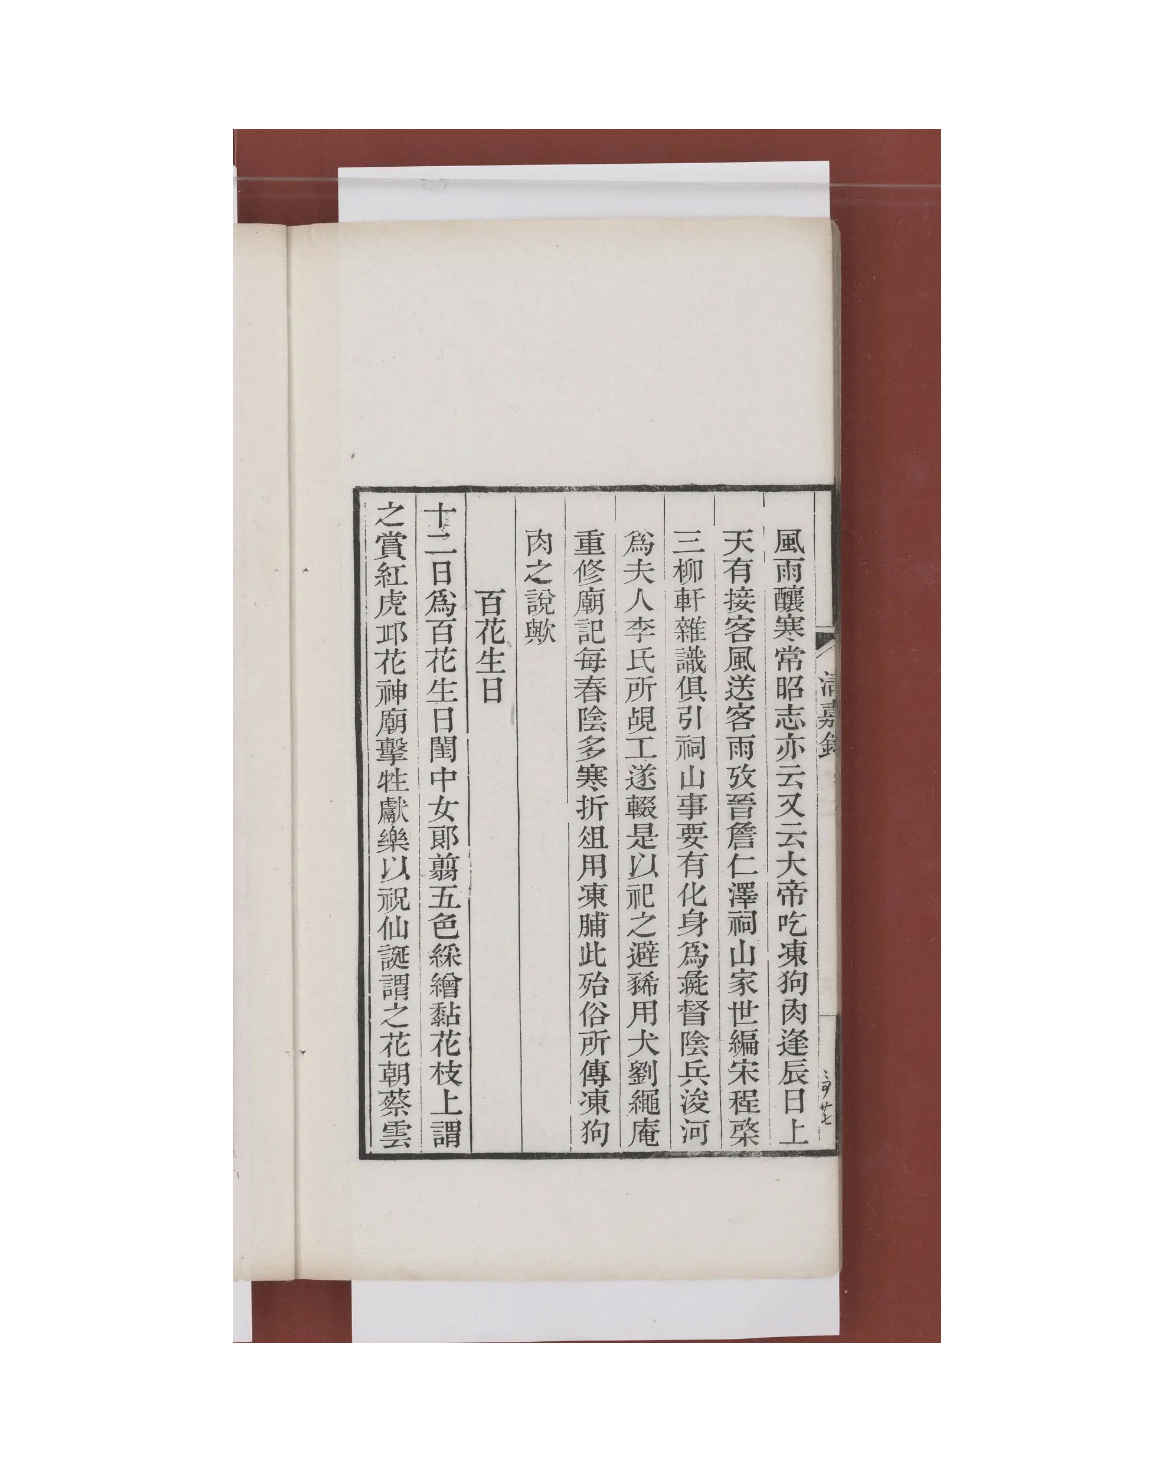 風雨釀寒常昭志亦云又云大帝吃凍狗肉逢辰日上
天有接客風送客雨攷晉詹仁澤祠山家世編宋程棨
三柳軒雜識俱引祠山事要有化身爲彘督陰兵浚河
爲夫人李氏所覘工遂輟是以祀之避豨用犬劉繩庵
重修廟記每春陰多寒折俎用凍脯此殆俗所傳凍狗
肉之說歟
百花生日
十二日爲百花生日閨中女郞翦五色綵繒黏花枝上謂
之賞紅虎邱花神廟擊牲獻樂以祝仙誕謂之花朝蔡雲
清嘉錄